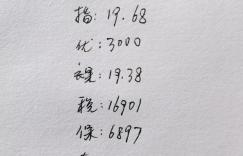 指:19.68
优:3000
:19.38
税:16901
保:6897